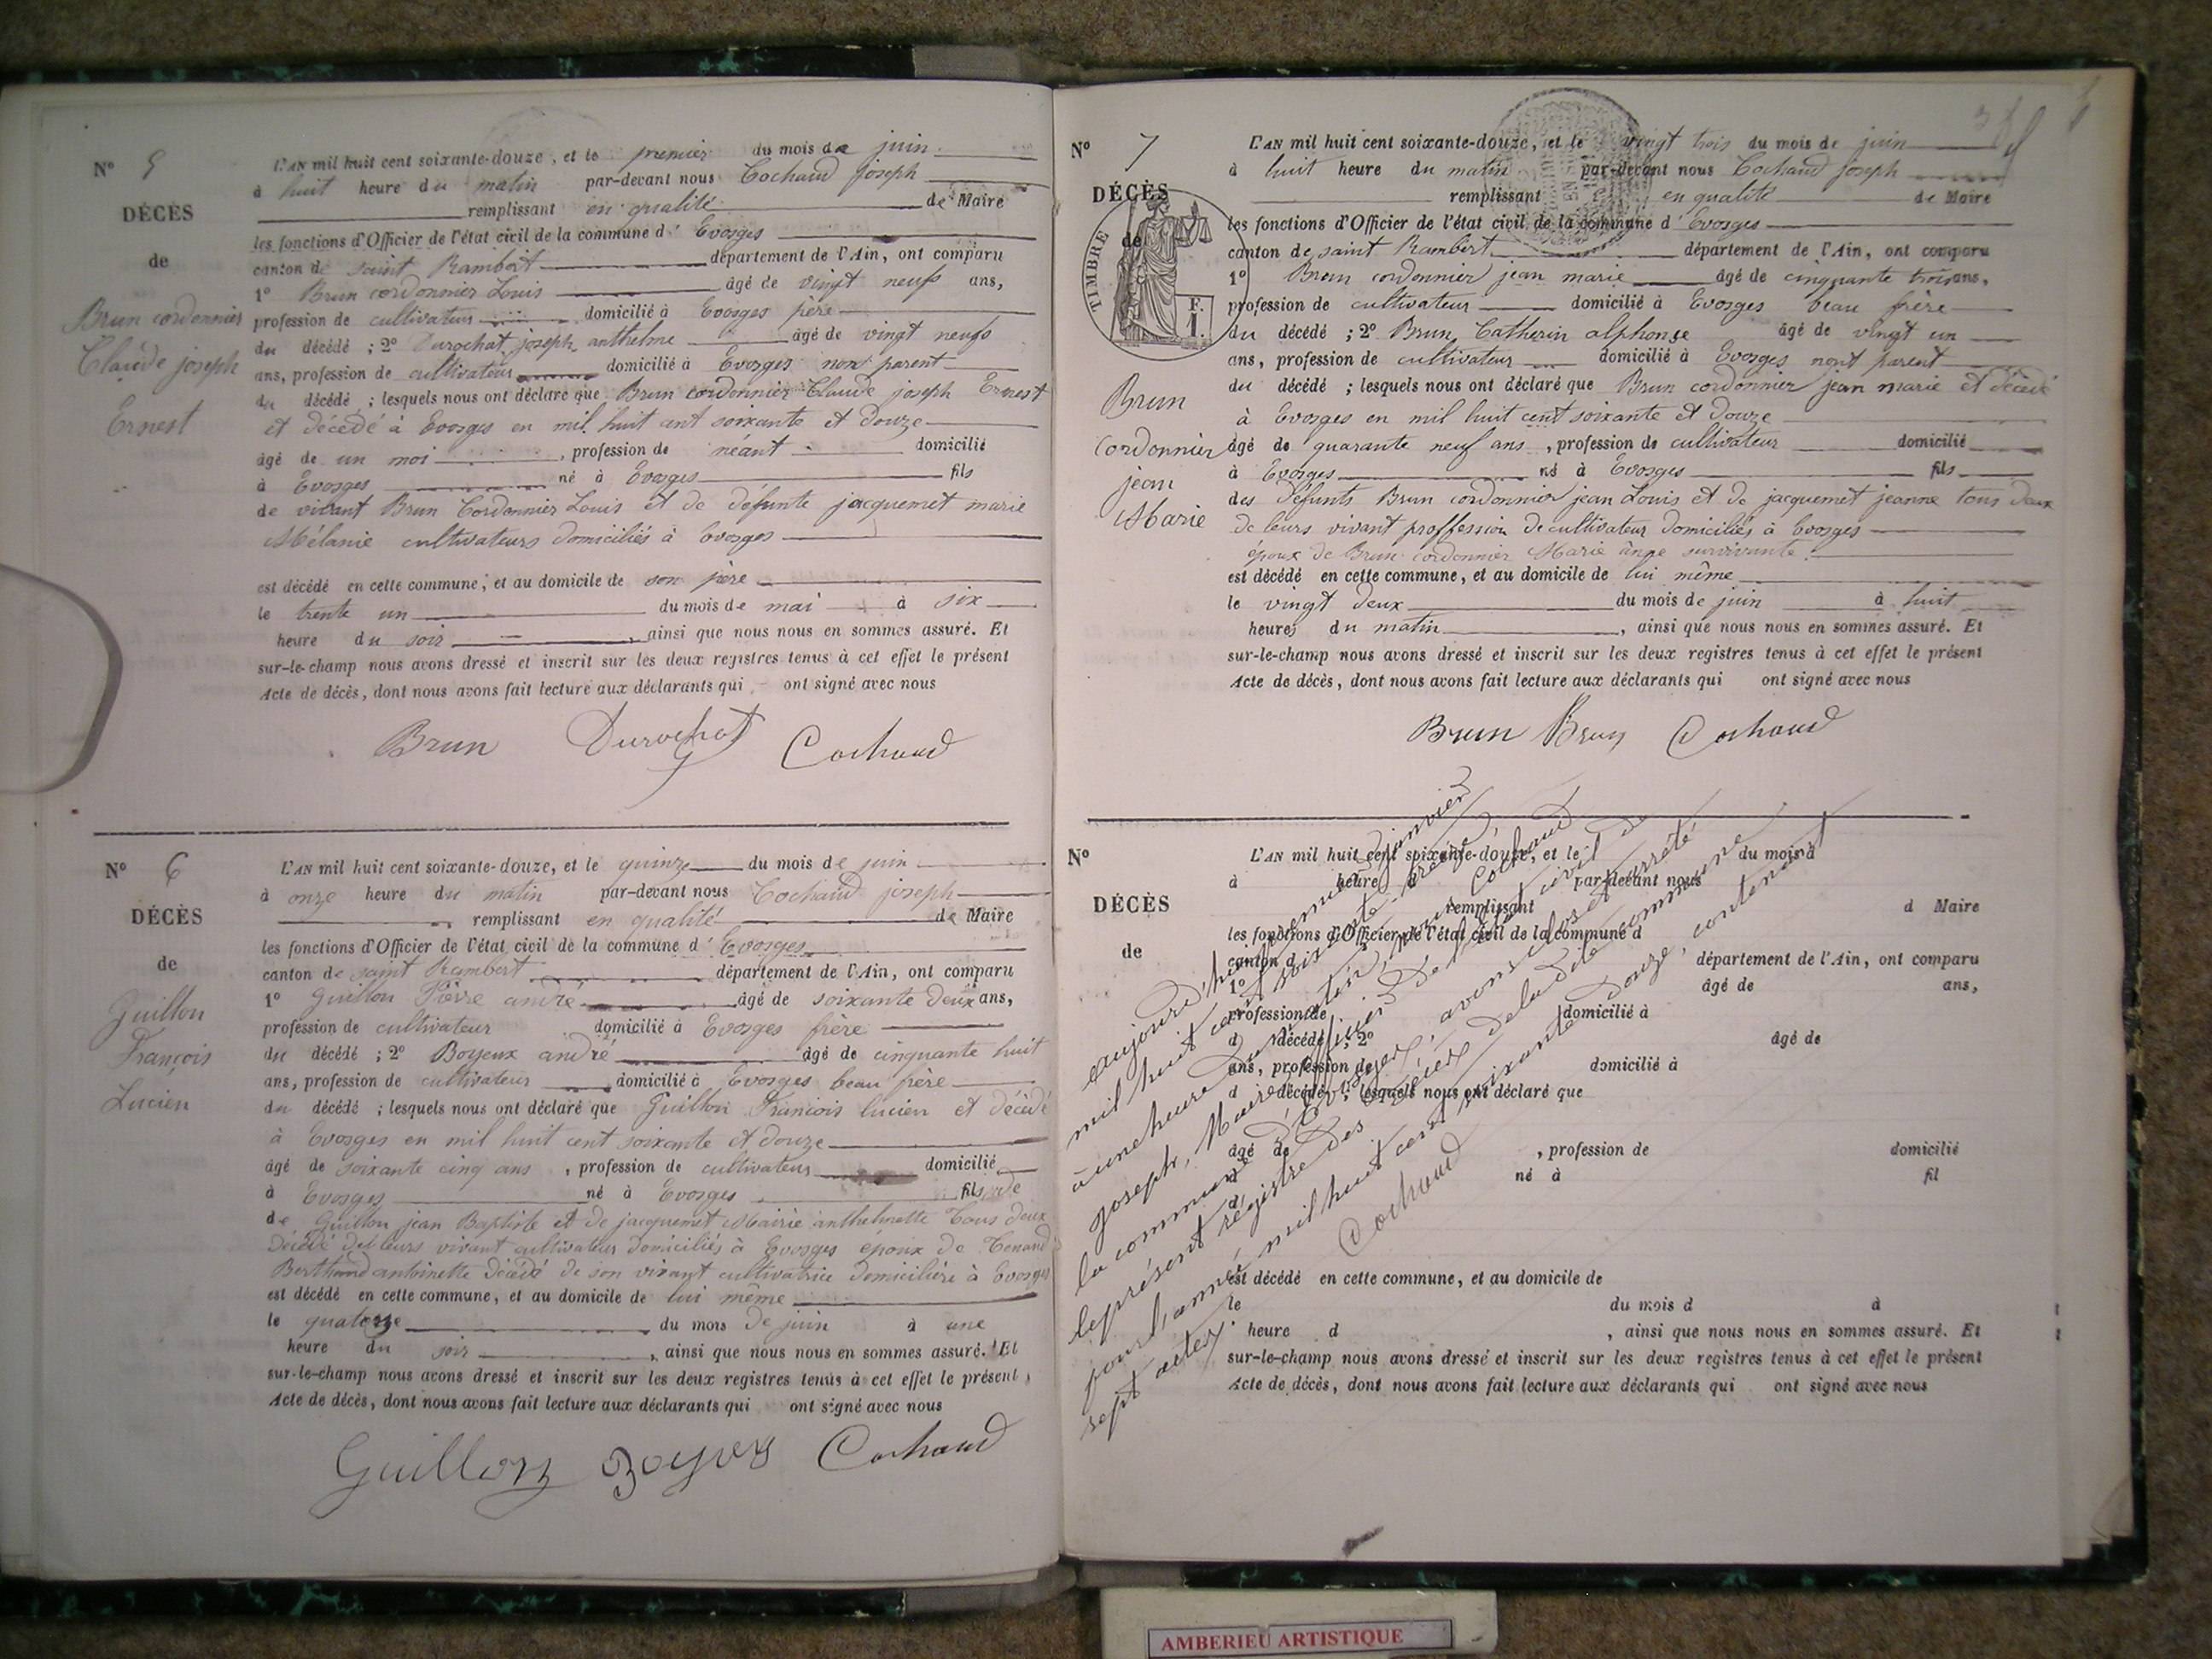 N° 5
DÉCÈS
de
Brun cordonnier
Claude joseph
Ernest
L'AN mil huit cent soixante-douze, et le premier du mois de juin
à huit heure du matin par-devant nous Cochaud joseph
remplissant en qualité de Maire
les fonctions d'Officier de l'état civil de la commune d' Evosges
canton de saint Rambert département de l'Ain, ont comparu
1° Brun cordonnier Louis âgé de vingt neufs ans,
profession de cultivateur domicilié à Evosges père
du décédé ; 2° Durochat joseph anthelme âgé de vingt neufs
ans, profession de cultivateur domicilié à Evosges non parent
du décédé ; lesquels nous ont déclaré que Brun cordonnier Claude joseph Ernest
et décédé à Evosges en mil huit cent soixante et douze
âgé de un moi , profession de néant domicilié
à Evosges né à Evosges fils
de vivant Brun Cordonnier Louis et de défunte jacquemet marie
Mélanie cultivateurs domiciliés à Evosges
est décédé en cette commune, et au domicile de son père
le trente un du mois de mai à six
heure du soir , ainsi que nous nous en sommes assuré. Et
sur-le-champ nous avons dressé et inscrit sur les deux registres tenus à cet effet le présent
Acte de décès, dont nous avons fait lecture aux déclarants qui ont signé avec nous
Brun Durochat Cochaud
N° 6
DÉCÈS
de
Guillon
François
Lucien
L'AN mil huit cent soixante-douze, et le quinze du mois de juin
à onze heure du matin par-devant nous Cochaud joseph
remplissant en qualité de Maire
les fonctions d'Officier de l'état civil de la commune d' Evosges
canton de saint Rambert département de l'Ain, ont comparu
1° Guillon Pierre andré âgé de soixante deux ans,
profession de cultivateur domicilié à Evosges frère
du décédé ; 2° Boyeux andré âgé de cinquante huit
ans, profession de cultivateur domicilié à Evosges beau frère
du décédé ; lesquels nous ont déclaré que Guillon François lucien et décédé
à Evosges en mil huit cent soixante et douze
âgé de soixante cinq ans , profession de cultivateur domicilié
à Evosges né à Evosges fils de
de Guillon jean Baptiste et de jacquemet Mairie anthelmette tous deux
décédé de leurs vivant cultivateur domiciliés à Evosges époux de Tenand
Berthand antoinette décédé de son vivant cultivatrice domicilière à Evosges
est décédé en cette commune, et au domicile de lui même
le quatorze du mois de juin à une
heure du soir , ainsi que nous nous en sommes assuré. Et
sur-le-champ nous avons dressé et inscrit sur les deux registres tenus à cet effet le présent
Acte de décès, dont nous avons fait lecture aux déclarants qui ont signé avec nous
Guillon Cochaud
N° 7
DÉCÈS
de
TIMBRE
1 F.
Brun
Cordonnier
jean
Marie
L'AN mil huit cent soixante-douze, et le vingt trois du mois de juin
à huit heure du matin par-devant nous Cochaud joseph
remplissant en qualité de Maire
les fonctions d'Officier de l'état civil de la commune d' Evosges
canton de saint Rambert département de l'Ain, ont comparu
1° Brun cordonnier jean marie âgé de cinquante trois ans,
profession de cultivateur domicilié à Evosges beau frère
du décédé ; 2° Brun Catherin alphonse âgé de vingt un
ans, profession de cultivateur domicilié à Evosges nont parent
du décédé ; lesquels nous ont déclaré que Brun cordonnier jean marie et décédé
à Evosges en mil huit cent soixante et douze
âgé de quarante neuf ans , profession de cultivateur domicilié
à Evosges né à Evosges fils
des défunts Brun cordonnier jean Louis et de jacquemet jeanne tous deux
de leurs vivant proffession de cultivateur domiciliés à Evosges
époux de Brun cordonnier Marie anne survivante
est décédé en cette commune, et au domicile de lui même
le vingt deux du mois de juin à huit
heures du matin , ainsi que nous nous en sommes assuré. Et
sur-le-champ nous avons dressé et inscrit sur les deux registres tenus à cet effet le présent
Acte de décès, dont nous avons fait lecture aux déclarants qui ont signé avec nous
Brun Brun Cochaud
N°
DÉCÈS
de
L'AN mil huit cent soixante-douze, et le du mois d
à heure d par-devant nous
remplissant d Maire
les fonctions d'Officier de l'état civil de la commune d
canton d département de l'Ain, ont comparu
1° âgé de ans,
profession de domicilié à
d décédé ; 2° âgé de
ans, profession de domicilié à
d décédé ; lesquels nous ont déclaré que
âgé de , profession de domicilié
à né à fil
d
est décédé en cette commune, et au domicile de
le du mois d à
heure d , ainsi que nous nous en sommes assuré. Et
sur-le-champ nous avons dressé et inscrit sur les deux registres tenus à cet effet le présent
Acte de décès, dont nous avons fait lecture aux déclarants qui ont signé avec nous
aujourd'hui premier janvier
mil huit cent soixante-treize,
à une heure du matin, nous Cochaud
joseph, Maire officier de l'état civil de
la commune d'Evosges, avons clos et arrêté
le présent régistre des décès de la dite commune
pour l'année mil huit cent soixante douze, contenant
sept actes.
Cochaud
AMBERIEU ARTISTIQUE